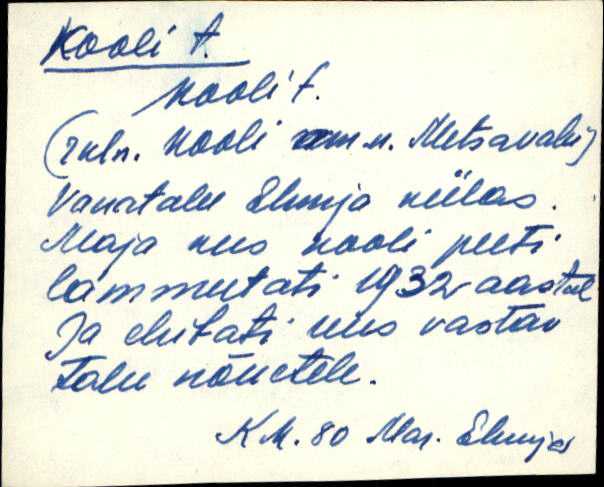 Kooli t.
kooli t.
(rhln. kooli am.n. Metsavahi)
Vanatalu Ehmja külas.
Maja kus kooli peeti
lammutati 1932 aastal
Ja ehitati uus vastav
talu nõuetele.
KM. 80 Mar. Ehmja